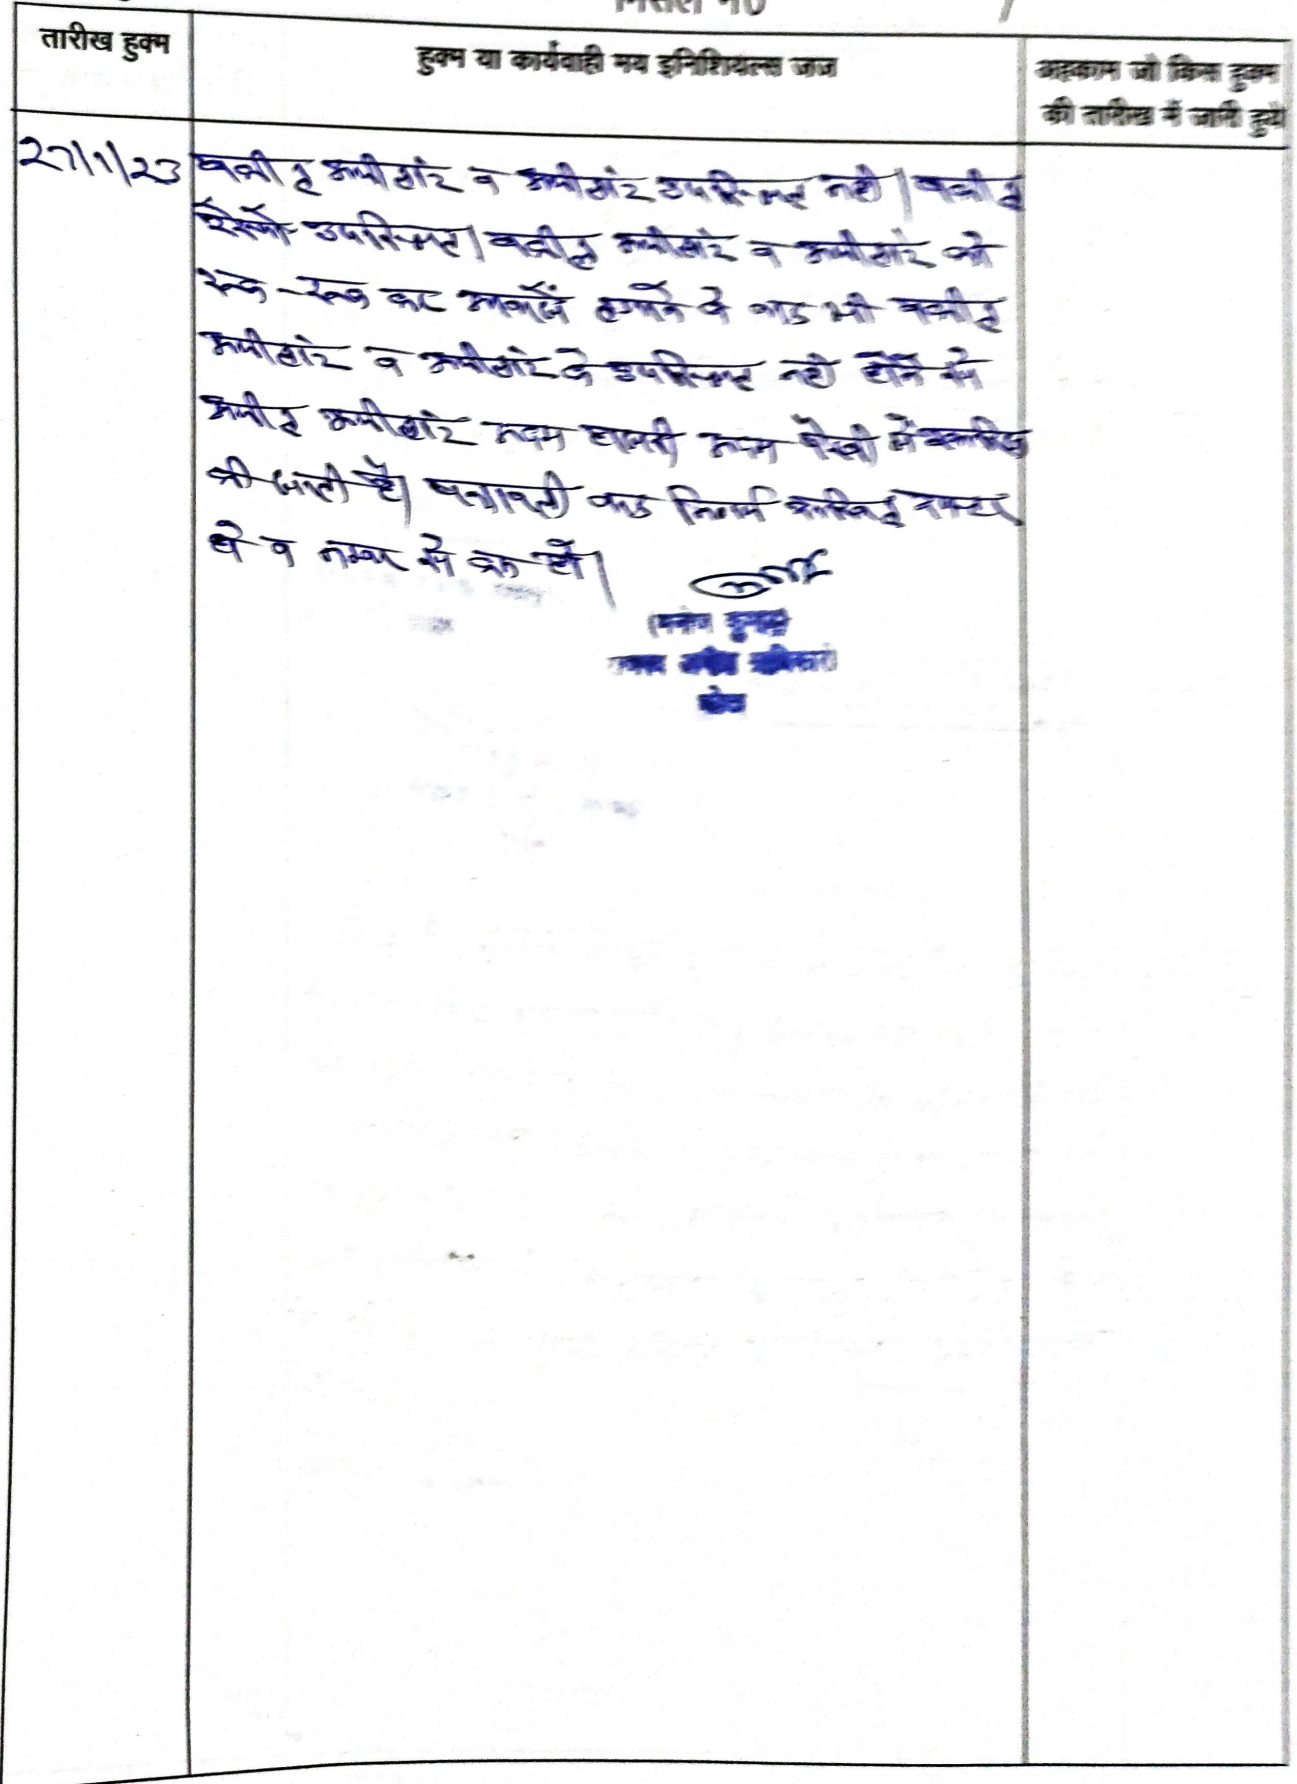 मिसल नं०
तारीख हुक्म
हुक्म या कार्यवाही मय इनिशियल्स जज
अहकाम जो किस हुक्म
की तारीख में जारी हुये
27/1/23
वकील अपीलांट व अपीलांट उपस्थित नहीं। वकील
रेस्पो उपस्थित। वकील अपीलांट व अपीलांट को
रूक-रूक कर आवाजें लगाने के बाद भी वकील
अपीलांट व अपीलांट के उपस्थित नहीं होने से
अपील अपीलांट अदम हाजरी अदम पैरवी में खारिज
की जाती है। पत्रावली बाद निर्णय दाखिल दफ्तर
हो व नम्बर से कम हो।